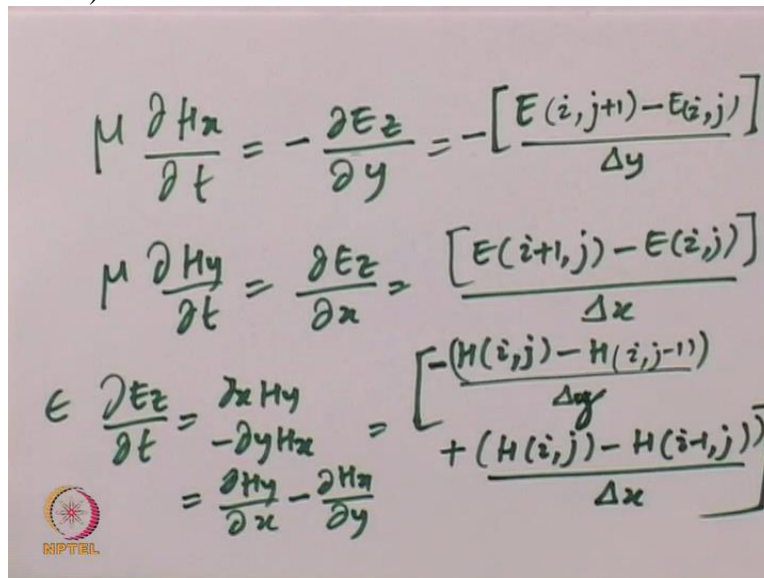 )
μ ∂Hx/∂t = - ∂Ez/∂y = -[E(i,j+1) - E(i,j)]/Δy
μ ∂Hy/∂t = ∂Ez/∂x = [E(i+1,j) - E(i,j)]/Δx
ϵ ∂Ez/∂t = ∂xHy - ∂yHx = [-(H(i,j) - H(i,j-1))/Δy
+ (H(i,j) - H(i-1,j))/Δx]
= ∂Hy/∂x - ∂Hx/∂y
NPTEL